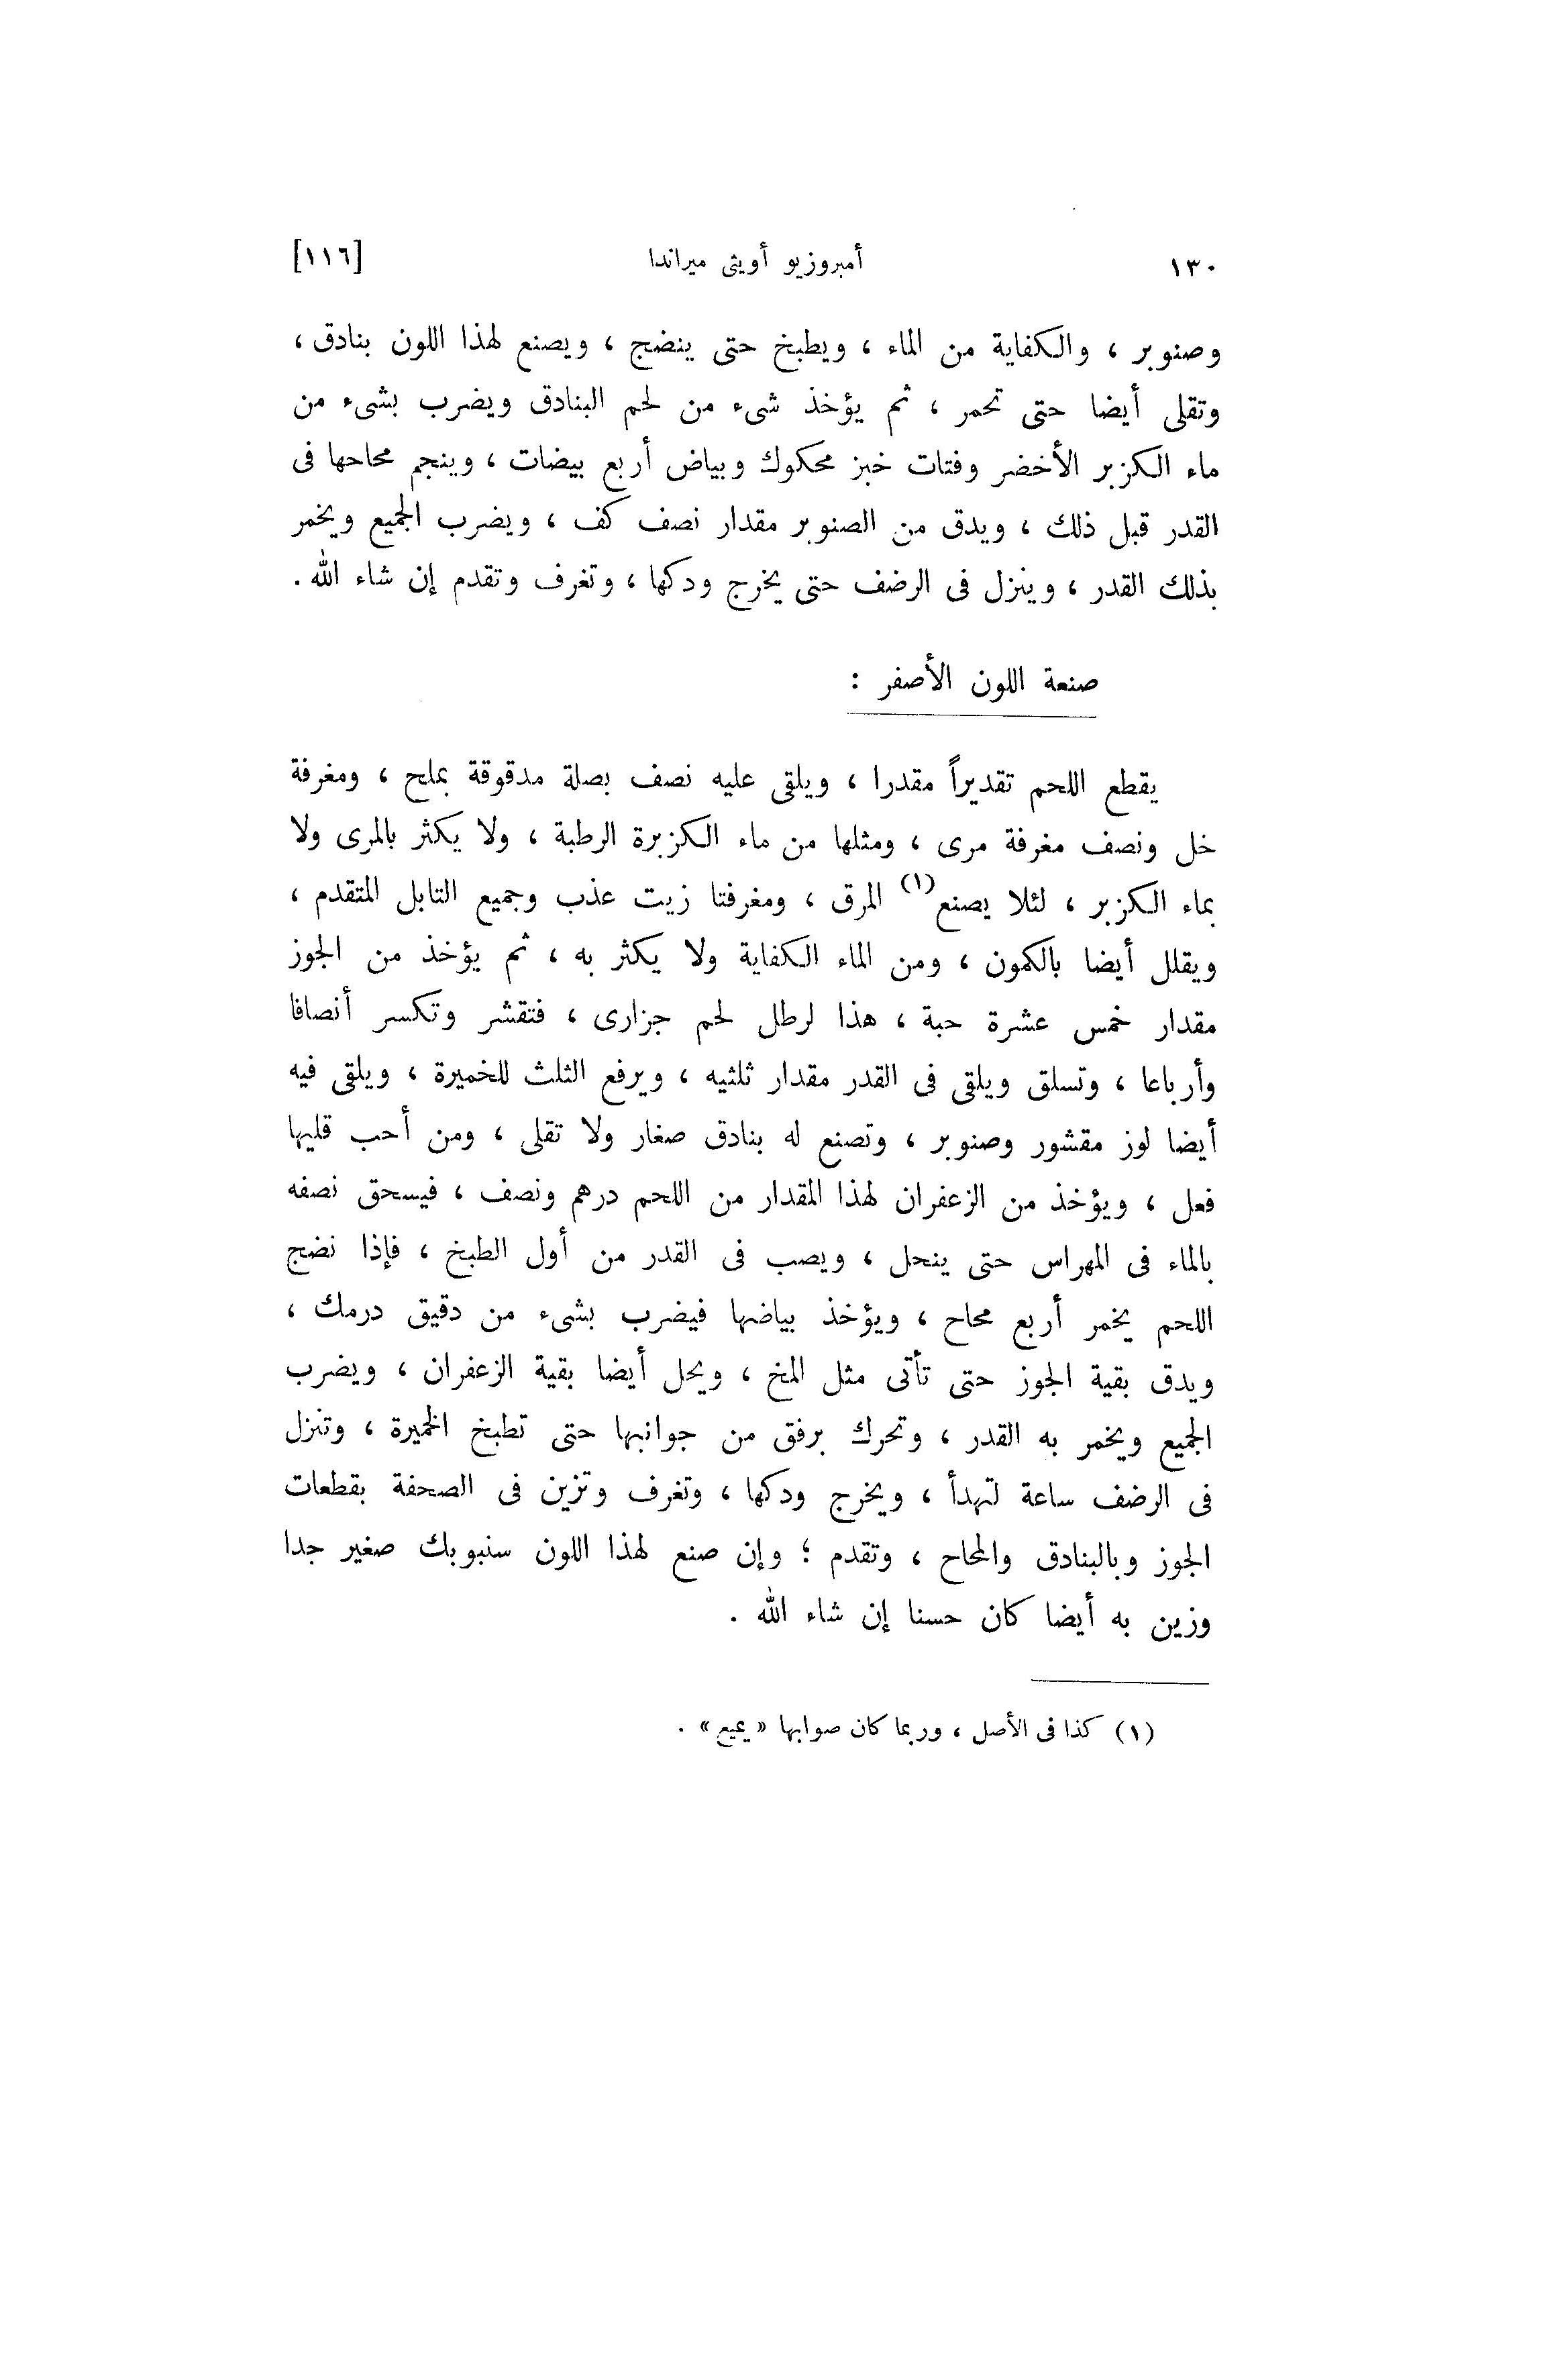 ١٣٠ أمبروزيو أويثى ميراندا [١١٦]
وصنوبر ، والكفاية من الماء ، ويطبخ حتى ينضج ، ويصنع لهذا اللون بنادق ،
وتقلى أيضا حتى تحمر ، ثم يؤخذ شىء من لحم البنادق ويضرب بشىء من
ماء الكزبر الأخضر وفتات خبز محكوك وبياض أربع بيضات ، وينجم محاحها فى
القدر قبل ذلك ، ويدق من الصنوبر مقدار نصف كف ، ويضرب الجميع ويخمر
بذلك القدر ، وينزل فى الرضف حتى يخرج ودكها ، وتغرف وتقدم إن شاء الله .
صنعة اللون الأصفر :
يقطع اللحم تقديراً مقدرا ، ويلقى عليه نصف بصلة مدقوقة بملح ، ومغرفة
خل ونصف مغرفة مرى ، ومثلها من ماء الكزبرة الرطبة ، ولا يكثر بالمرى ولا
بماء الكزبر ، لئلا يصنع(١) المرق ، ومغرفتا زيت عذب وجميع التابل المتقدم ،
ويقلل أيضا بالكمون ، ومن الماء الكفاية ولا يكثر به ، ثم يؤخذ من الجوز
مقدار خمس عشرة حبة ، هذا لرطل لحم جزارى ، فتقشر وتكسر أنصافا
وأرباعا ، وتسلق ويلقى فى القدر مقدار ثلثيه ، ويرفع الثلث للخميرة ، ويلقى فيه
أيضا لوز مقشور وصنوبر ، وتصنع له بنادق صغار ولا تقلى ، ومن أحب قليها
فعل ، ويؤخذ من الزعفران لهذا المقدار من اللحم درهم ونصف ، فيسحق نصفه
بالماء فى المهراس حتى ينحل ، ويصب فى القدر من أول الطبخ ، فإذا نضج
اللحم يخمر أربع محاح ، ويؤخذ بياضها فيضرب بشىء من دقيق درمك ،
ويدق بقية الجوز حتى تأتى مثل المخ ، ويحل أيضا بقية الزعفران ، ويضرب
الجميع ويخمر به القدر ، وتحرك برفق من جوانبها حتى تطبخ الخميرة ، وتنزل
فى الرضف ساعة لتهدأ ، ويخرج ودكها ، وتغرف وتزين فى الصحفة بقطعات
الجوز وبالبنادق والمحاح ، وتقدم ؛ وإن صنع لهذا اللون سنبوبك صغير جدا
وزين به أيضا كان حسنا إن شاء الله .
(١) كذا فى الأصل ، وربما كان صوابها « يميع » .